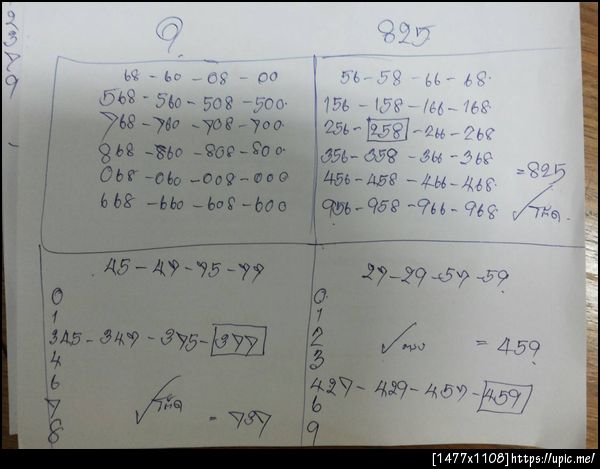 9
825
68-60-08-00
568-560-508-500.
768-760-708-700
868-860-808-800.
068-060-008-000
668-660-608-600
56-58-66-68.
156-158-166-168
256-258-266-268
356-358-366-368
456-458-466-468.
956-958-966-968
=825
✓โต๊ด
45-47-75-77
0
1
3 345-347-375-377
4
6
7
8
✓โต๊ด = 737
27-29-57-59
0
1
2
3
✓ตรง = 459
4 427-429-457-459
6
9
[1477x1108]https://upic.me/